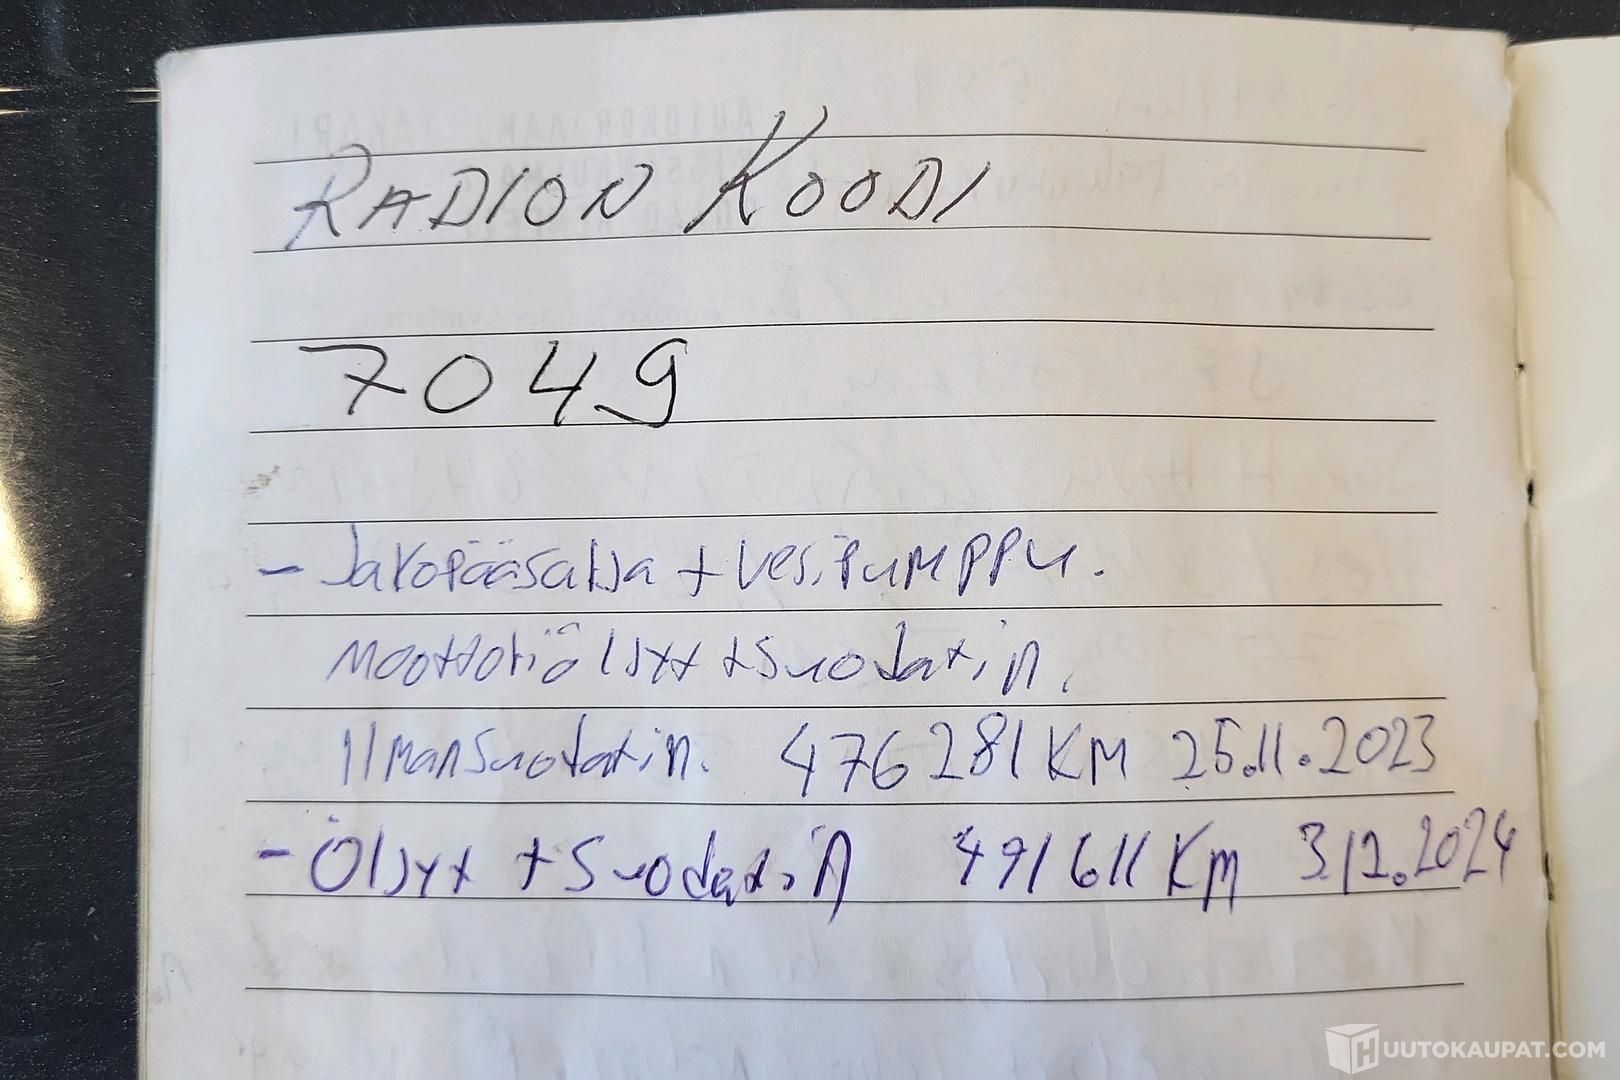 RADION KOODI
7049
- Jakopääsarja + Vesipumppu.
Moottoriöljyt + Suodatin.
Ilmansuodatin. 476281 KM 25.11.2023
- Öljyt + Suodatin 491611 KM 3.12.2024
HUUTOKAUPAT.COM